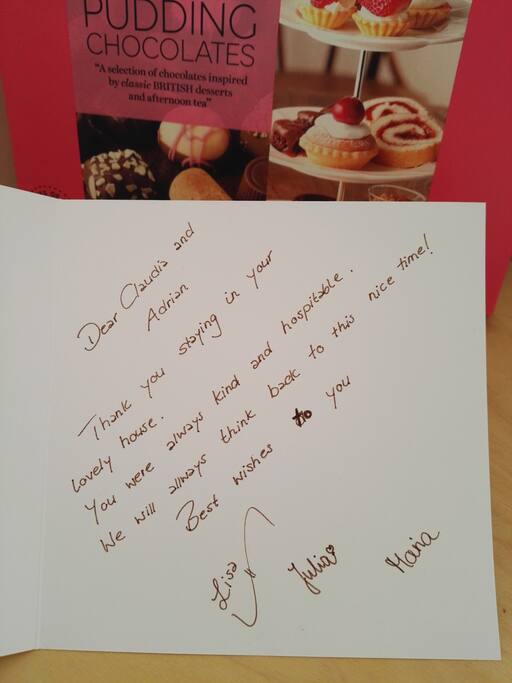 PUDDING
CHOCOLATES
"A selection of chocolates inspired
by classic BRITISH desserts
and afternoon tea"
Dear Claudia and
Adrian
Thank you staying in your
lovely house.
You were always kind and hospitable.
We will allways think back to this nice time!
Best wishes to you
Lisa
Julia
Maria